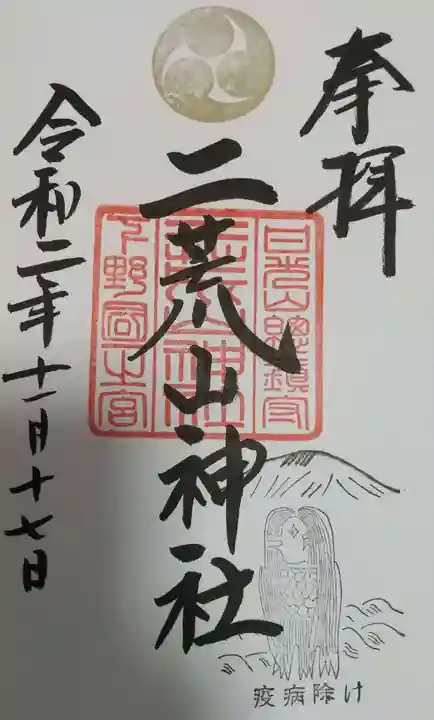 奉拝
日光山總鎮守
二荒山神社
二荒山神社
下野國一之宮
令和二年十一月十七日
疫病除け